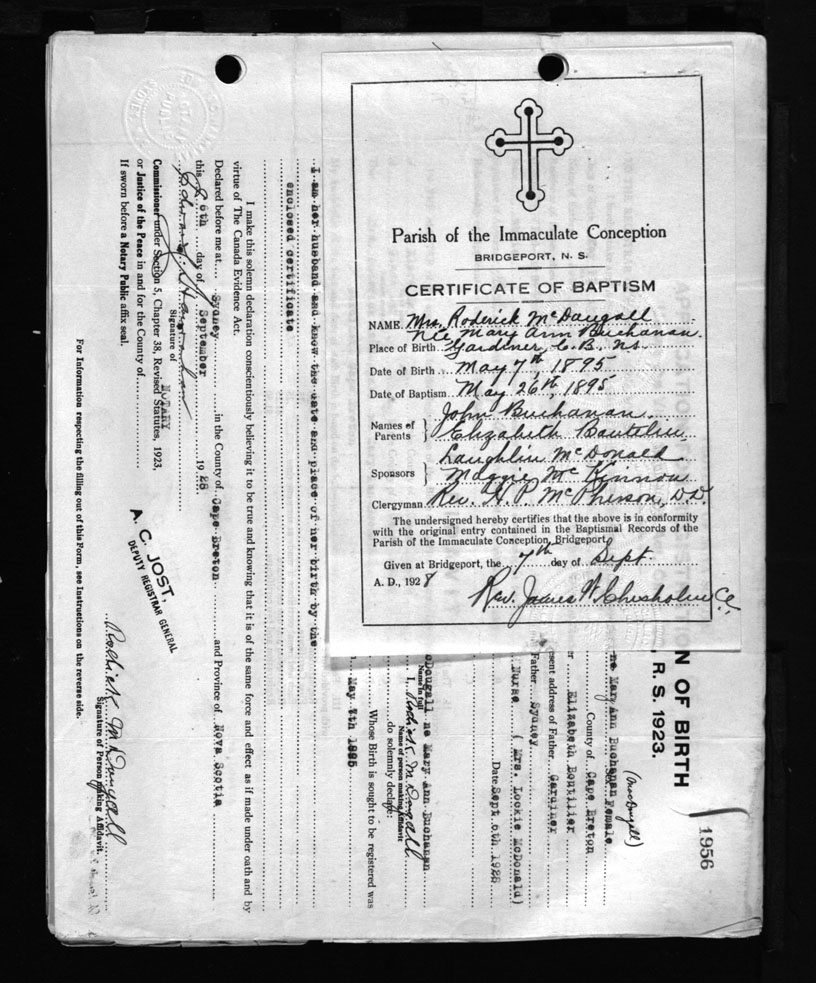 Parish of the Immaculate Conception
BRIDGEPORT, N. S.
CERTIFICATE OF BAPTISM
NAME. Mrs. Roderick McDougall
nee Mary Ann Buchanan.
Place of Birth Gardiner, C. B. N.S.
Date of Birth May 7th, 1895
Date of Baptism May 26th, 1895
Names of Parents } John Buchanan.
Elizabeth
Sponsors } Laughlin McDonald
Maggie McKinnon
Clergyman Rev. H. P. McPherson, D.D.
The undersigned hereby certifies that the above is in conformity
with the original entry contained in the Baptismal Records of the
Parish of the Immaculate Conception, Bridgeport,
Given at Bridgeport, the 7th day of Sept.
A. D., 1928
Rev. James W. Chisholm
N OF BIRTH
R. S. 1923.
1956
(MacDougall)
ne Mary Ann Buchanan Female
County of Cape Breton
Elizabeth Boutilier
esent address of Father Gardiner
Father Sydney
Nurse ( Mrs. Lockie McDonald)
Date Sept 6th 1928
cDougall ne Mary Ann Buchanan
Name in full
I, McDougall
Name of person making Affidavit
do solemnly declare:
Whose Birth is sought to be registered was
May 7th 1895
I am her husband and know the date and place of her birth by the
enclosed certificate
I make this solemn declaration conscientiously believing it to be true and knowing that it is of the same force and effect as if made under oath and by
virtue of The Canada Evidence Act.
Declared before me at Sydney in the County of Cape Breton and Province of Nova Scotia
this 26th day of September 1928
Signature of
NOTARY
Commissioner under Section 5, Chapter 38, Revised Statutes, 1923,
or Justice of the Peace in and for the County of
If sworn before a Notary Public affix seal.
A. C. JOST,
DEPUTY REGISTRAR GENERAL
McDougall
Signature of Person making Affidavit.
For Information respecting the filling out of this Form, see Instructions on the reverse side.